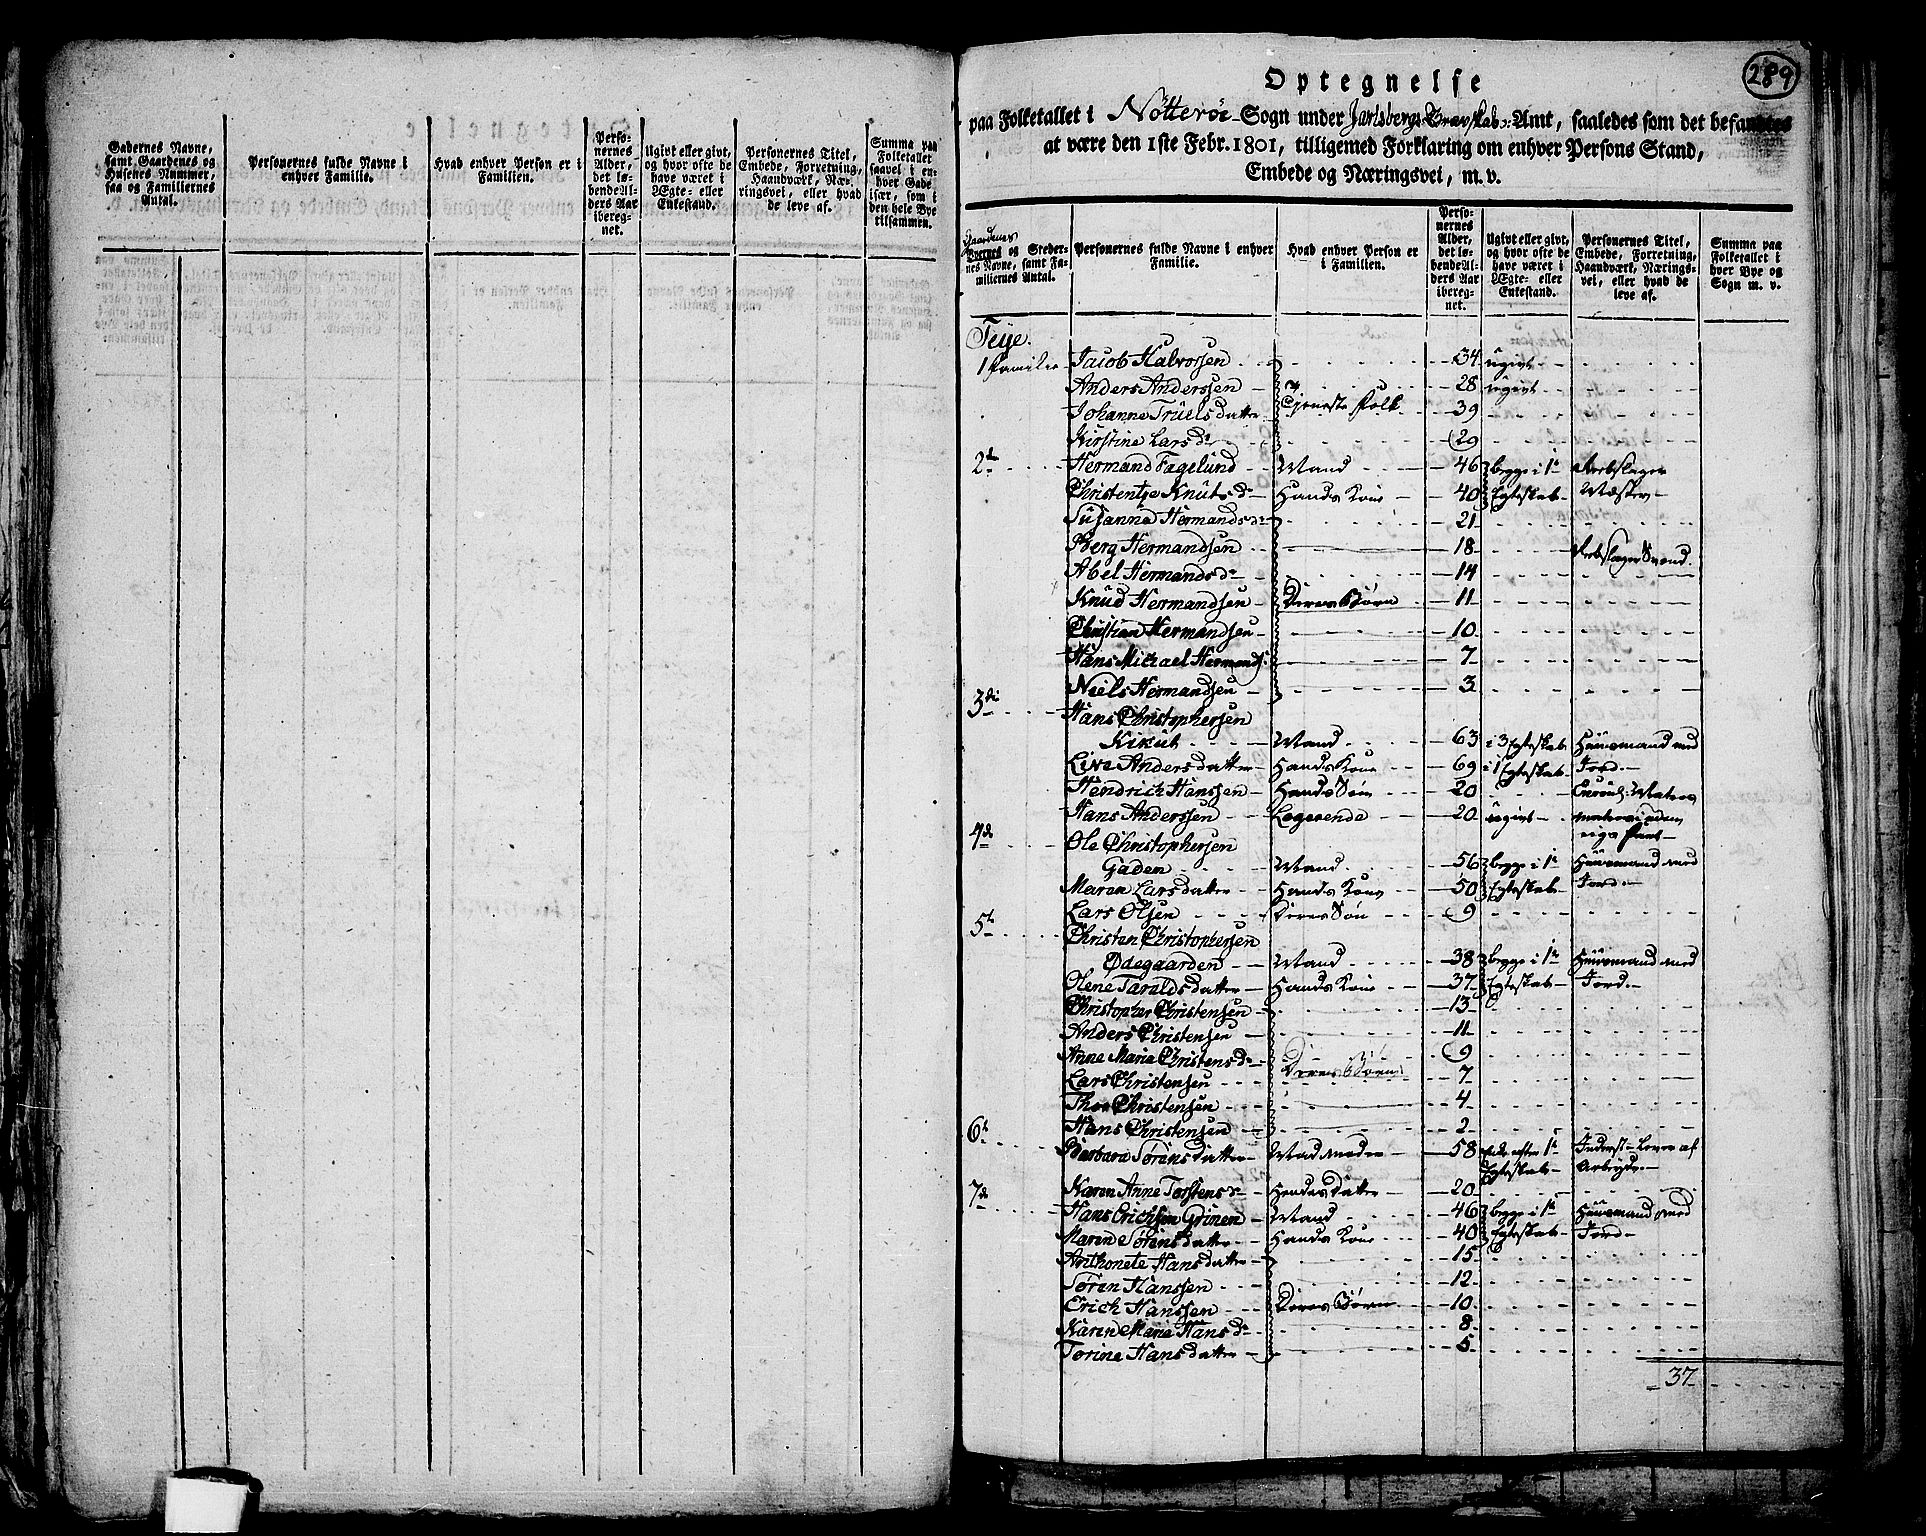 Gadernes Navne,
samt Gaardenes og
Husenes Nummer,
saa og Familiernes
Antal.
Personernes fulde Navne i
enhver Familie.
Hvad enhver Person er i
Familien.
Perso-
nernes
Alder,
det lø-
bende Al-
ders Aar
ibereg-
net.
Ugivt eller givt,
og hvor ofte de
have været i
Ægte- eller
Enkestand.
Personernes Titel,
Embede, Forretning,
Haandværk, Næ-
ringsvei, eller hvad
de leve af.
Summa paa
Folketallet
saavel i en-
hver Gade
især, som i
den hele Bye
tilsammen.
289
Optegnelse
paa Folketallet i Nötteröe Sogn under Jarlsbergs Grevskabs Amt, saaledes som det befandtes
at være den 1ste Febr. 1801, tilligemed Forklaring om enhver Persons Stand,
Embede og Næringsvei, m. v.
Gaardenes
Byernes og Steder-
nes Navne, samt Fa-
miliernes Antal.
Personernes fulde Navne i enhver
Familie.
Hvad enhver Person er
i Familien.
Perso-
nernes
Alder,
det lø-
bende Al-
ders Aar
ibereg-
net.
Ugivt eller givt,
og hvor ofte de
have været i
Ægte- eller
Enkestand.
Personernes Titel,
Embede, Forretning,
Haandværk, Nærings-
vei, eller hvad de
leve af.
Summa paa
Folketallet i
hver Bye og
Sogn m. v.
Teije.
1 Familie Jacob Halvorssen 34 ugivt
Anders Anderssen 28 ugivt
Johanne Truelsdatter Tjeneste Folk 39
Kirstine Larsdr 29
2de Hermand Fagelund Mand 46 begge i 1te Rebslager
Christentze Knutsdr Hands Kone 40 Egteskab Mæster
Susanna Hermandsdr 21
Berg Hermandsen 18 Rebslager Svend
Abel Hermandsdr 14
Knud Hermandsen Deres Børn 11
Christian Hermandsen 10
Hans Michael Hermands. 7
Niels Hermandsen 3
3die Hans Christophersen
Kikut Mand 63 i 3 Egteskab Huusmand med
Live Andersdatter Hands Kone 69 i 1 Egteskab Jord
Hendrich Hanssen Hands Søn 20 Enroul: Matros
Hans Anderssen Logerende 20 ugivt
4de Ole Christophersen
Gaden Mand 56 begge i 1te Huusmand med
Maren Larsdatter Hands Kone 50 Egteskab Jord
Lars Olsen Deres Søn 9
5te Christen Christophersen
Ødegaarden Mand 38 begge i 1te Huusmand med
Olene Taraldsdatter Hands Kone 37 Egteskab Jord
Christopher Christensen 13
Anders Christensen 11
Anne Maria Christensdr 9
Lars Christensen Deres Børn 7
Thor Christensen 4
Hans Christensen 2
6te Barbara Sörensdatter Madmoder 58 Enke efter 1te Inderst: Lever af
Egteskab Arbeyde
Karen Anne Torstensdr Hendes datter 20
7de Hans Erichsen Grinen Mand 46 begge i 1te Huusmand med
Maren Sörensdatter Hands Kone 40 Egteskab Jord
Anthonete Hansdatter 15
Sören Hanssen 12
Erich Hanssen Deres Børn 10
Karen Maria Hansdr 8
Torine Hansdatter 5
37